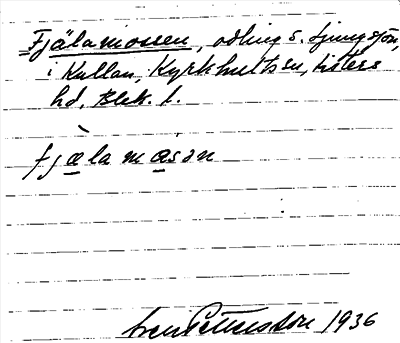 Fjälamossen, odling s. Ljungsjön,
i Kullan, Kyrkhults sn, Listers
hd, Blek. l.
fjælamåsan
1936